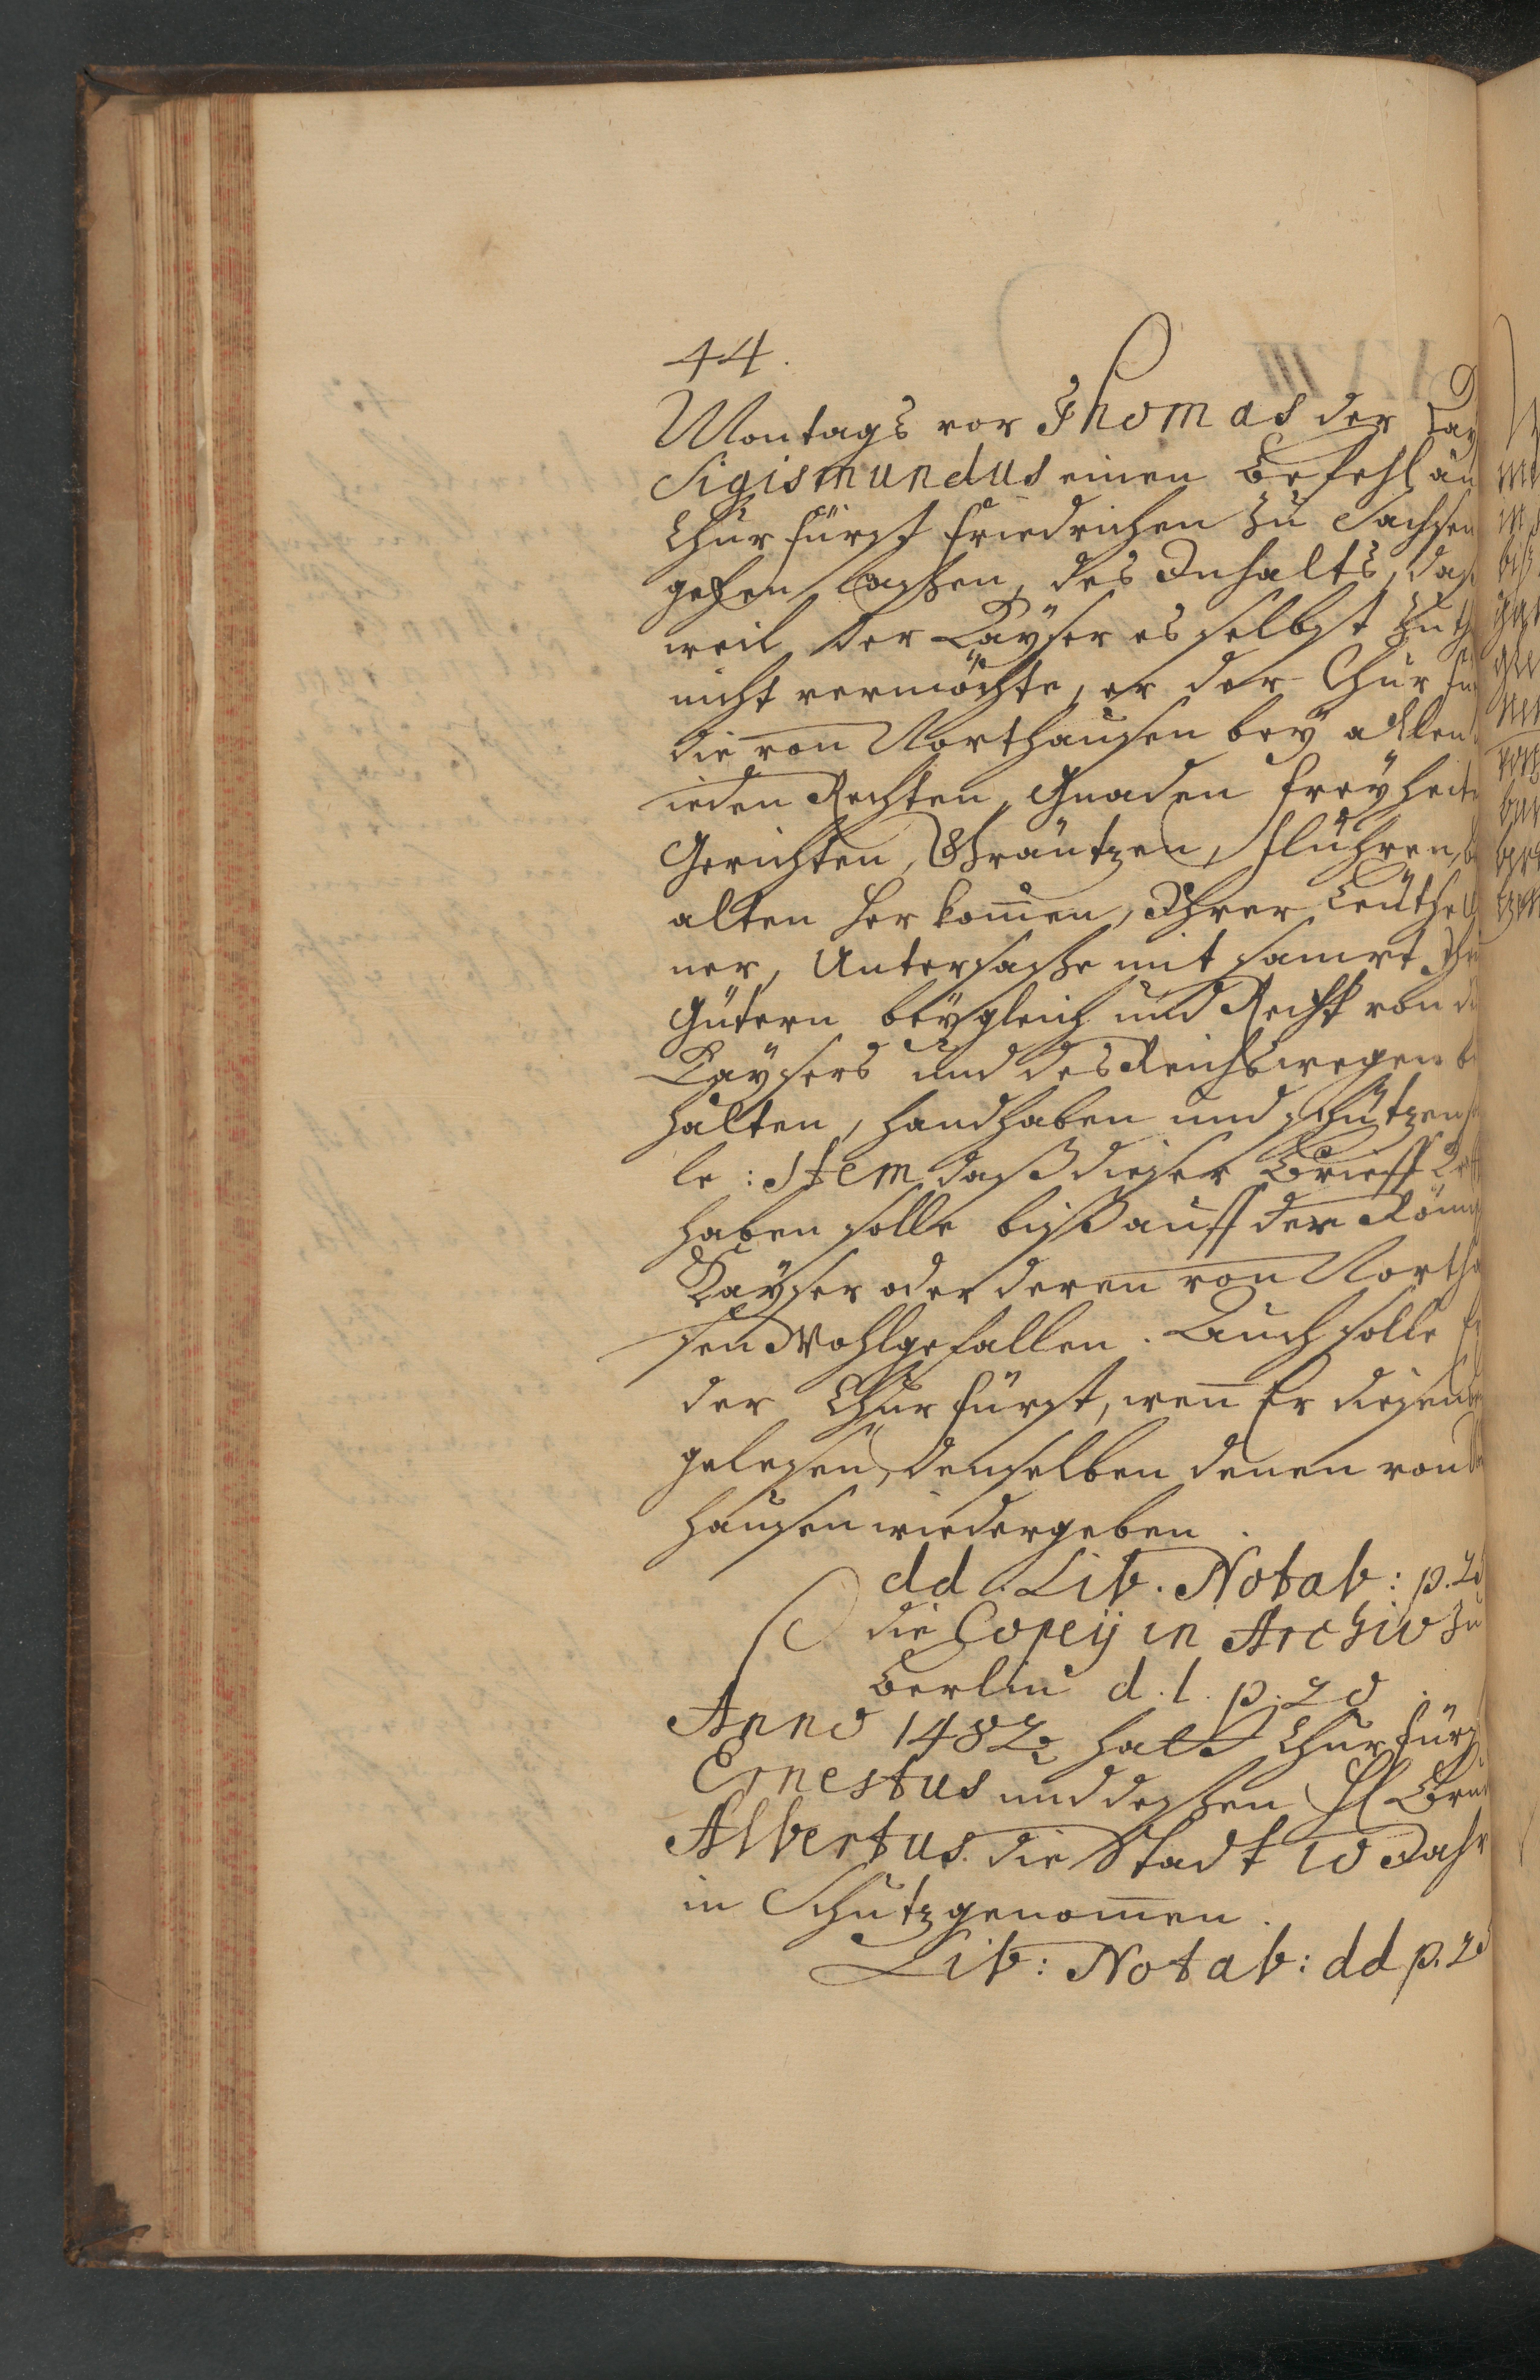 44.
Montags vor Thomas der Kaÿ
Sigismundus einen Befehl an
Churfürst Friedrichen zu Sachsen
gehen laßen, des Inhalts, daß
weil der Kaÿser es selbst zu th
nicht vermöchte, er der Churfü
die von Northausen beÿ allen
ieden Rechten, Gnaden Freÿheite
Gerichten, Gräntzen, Fluhren, b
alten Herkom̅en, Ihrer Leuthe
ner, Untersaße mit samt Ihr
Gütern beÿ gleich und Recht von d
Kaÿsers und des Reichs wegen b
halten, handhaben und schützen so
le: Item daß dieser Brieff
haben solle biß auff der Röm
Kaÿser oder deren von Northa
sen Wohlgefallen. Auch solle
der Churfürst, wen̅ Er diesen
gelesen, denselben denen von
hausen wiedergeben.
dd. Lib. Notab: p. 20
die Copeÿ in Archiv zu
Berlin d. l. p. 20.
Anno 1482 hatt Churfürs
Ernestus und deßen H Bru
Albertus die Stadt 10 Jahr
in Schutz genom̅en.
Lib: Notab: dd p. 20